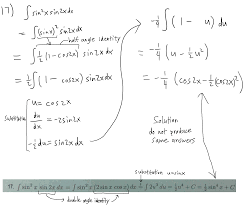 17) ∫ sin²x sin2x dx
= ∫ (sinx)² sin2x dx
half angle identity
= ∫ ½(1-cos2x) sin2x dx
= ½ ∫ (1-cos2x) sin2x dx
Substitution
u = cos2x
du/dx = -2sin2x
-½du = sin2x dx
-¼ ∫ (1 - u) du
= -¼ (u - ½u²)
= -¼ (cos2x - ½(cos2x)²)
Solution
do not produce
same answers
substitution u=sinx
17. ∫ sin²x sin2x dx = ∫ sin²x (2sinx cosx) dx = ∫ 2u³ du = ½u⁴ + C = ½ sin⁴x + C
double angle identity